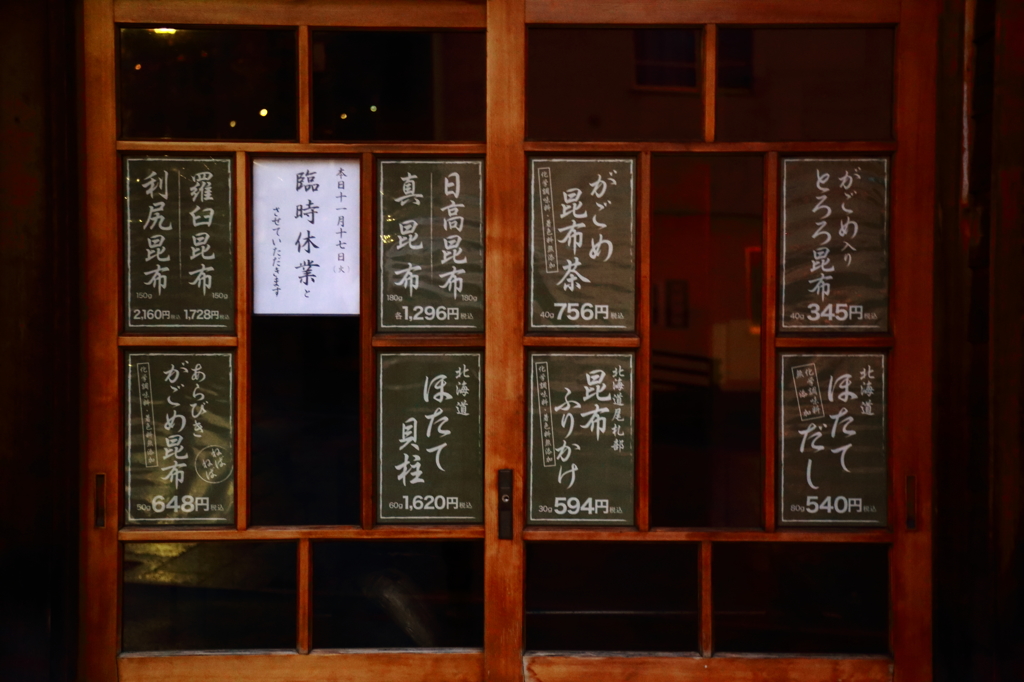 羅臼昆布
150g
1,728円税込
利尻昆布
150g
2,160円税込
本日十一月十七日(火)
臨時休業と
させていただきます
日高昆布
180g
真昆布
180g
各1,296円税込
がごめ
昆布茶
化学調味料・着色料無添加
40g 756円税込
がごめ入り
とろろ昆布
40g 345円税込
あらびき
がごめ昆布
化学調味料・着色料無添加
ねばねば
50g 648円税込
北海道
ほたて
貝柱
60g 1,620円税込
北海道尾札部
昆布
ふりかけ
化学調味料・着色料無添加
30g 594円税込
北海道
ほたて
だし
化学調味料
無添加
80g 540円税込